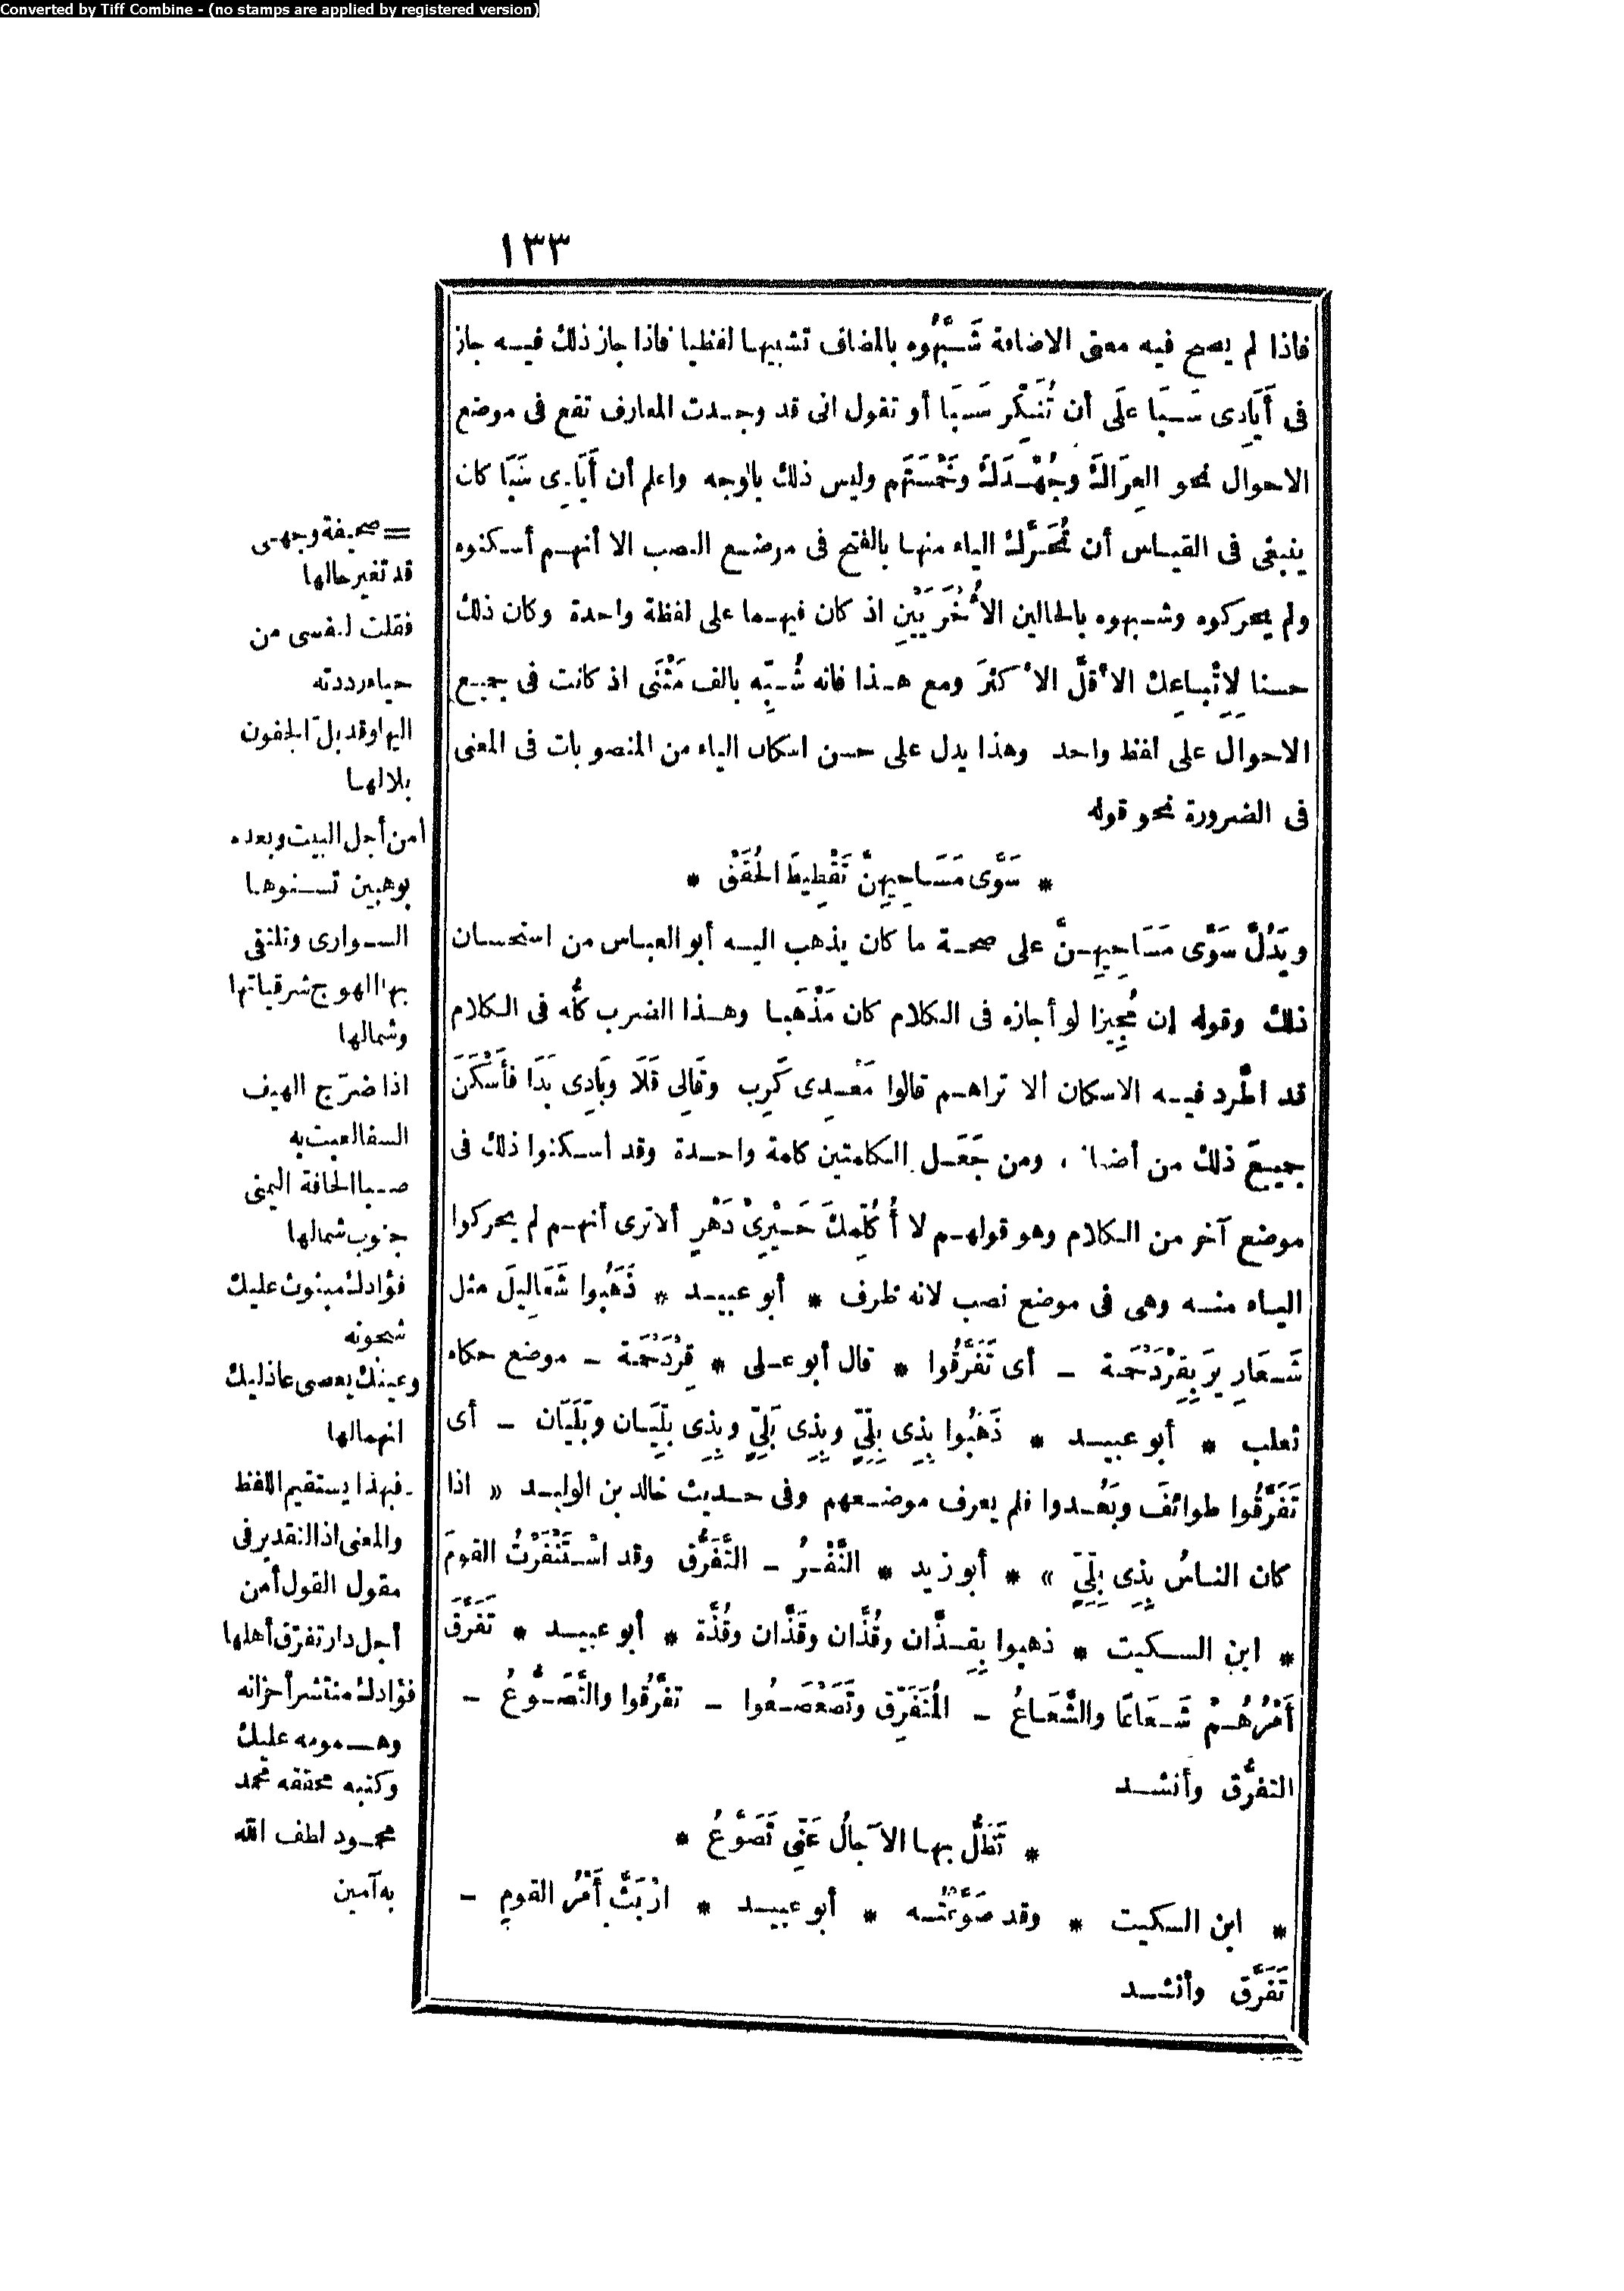 Converted by Tiff Combine - (no stamps are applied by registered version)
١٣٣
فاذا لم يصح فيه معنى الاضافة شَبَّهُوه بالمضاف تشبيها لفظيا فاذا جاز ذلك فيه جاز
فى أَيَادِى سَبَا علَى أن تُنَكِّر سَبَا أو تقول انى قد وجدت المعارف تقع فى موضع
الاحوال نحو العِرَاكَ وجُهْدَكَ وخَمْسَتَهم وليس ذلك بالوجه واعلم أن أَيَادِى سَبَا كان
ينبغى فى القياس أن تُحَرَّك الياء منها بالفتح فى موضع النصب الا أنهم أسكنوه
ولم يحركوه وشبهوه بالحالين الأُخْرَيَيْنِ اذ كان فيهما على لفظة واحدة وكان ذلك
حسنا لِاِتْباعِك الأقلَّ الأكثَرَ ومع هذا فانه شُبِّه بالف مَثْنَى اذ كانت فى جميع
الاحوال على لفظ واحد وهذا يدل على حسن اسكان الياء من المنصوبات فى المعنى
فى الضرورة نحو قوله
* سَوَّى مَسَاحِيهِنَّ تَقْطِيطَ الحُقَقْ *
ويَدُلّ سَوَّى مَسَاحِيهِنَّ على صحة ما كان يذهب اليه أبو العباس من استحسان
ذلك وقوله إن مُجِيزا لو أجازه فى الكلام كان مَذْهَبا وهذا الضرب كُلُّه فى الكلام
قد اطَّرد فيه الاسكان ألا تراهم قالوا مَعْدِى كَرِب وقَالِى قَلَا وبَادِى بَدَا فأَسْكَنَ
جميعَ ذلك من أضاف ومن جَعَل الكلمتين كلمة واحدة وقد أسكنوا ذلك فى
موضع آخر من الكلام وهو قولهم لا أُكَلِّمكَ حَيْرِىْ دَهْرٍ ألا ترى أنهم لم يحركوا
الياء منه وهى فى موضع نصب لانه ظرف * أبو عبيد * ذَهَبُوا شَعَالِيلَ مثل
شَعَارِيرَ بِقِرْدَحْمَة - أى تَفَرَّقُوا * قال أبو على * قِرْدَحْمَة - موضع حكاه
ثعلب * أبو عبيد * ذَهَبُوا بِذِى بِلِّيٍّ وبِذِى بَلِيٍّ وبِذِى بِلِّيَان وبَلَيَان - أى
تَفَرَّقُوا طوائفَ وبَعُدوا فلم يعرف موضعهم وفى حديث خالد بن الوليد « اذا
كان الناسُ بِذِى بِلِّيٍّ » * أبو زيد * النَّفْرُ - التَّفَرُّق وقد اسْتَنْفَرْتُ القومَ
* ابن السكيت * ذهبوا بِقِذَّان وقُذَّان وقَذَّان وقُذَّة * أبو عبيد * تَفَرَّقَ
أَمْرُهُمْ شَعَاعًا والشَّعَاعُ - المُتَفَرِّق وتَصَعْصَعُوا - تفَرَّقُوا والتَّصَوُّعُ -
التفرُّق وأنشد
* تَظَلُّ بها الآجالُ عَنِّى تَصَوَّعُ *
* ابن السكيت * وقد صَوَّعْتُه * أبو عبيد * ارْبَثَّ أَمْرُ القومِ -
تَفَرَّق وأنشد
= صحيفة وجهى
قد تغير حالها
فقلت لنفسى من
حياء رددته
اليها وقد بلّ الجفون
بلالها
أمن أجل البيت وبعده
بوهبين تسنوها
السوارى وتلتقى
بها الهوج شرقياتها
وشمالها
اذا ضرّج الهيف
السفا لعبت به
صبا الحافة اليمنى
جنوب شمالها
فؤادك مبثوث عليك
شجونه
وعينك يعصى عاذليك
انهمالها
فبهذا يستقيم اللفظ
والمعنى اذ التقدير فى
مقول القول أمن
أجل دار تفرّق أهلها
فؤادك منتشر أحزانه
وهمومه عليك
وكتبه محققه محمد
محمود لطف الله
به آمين